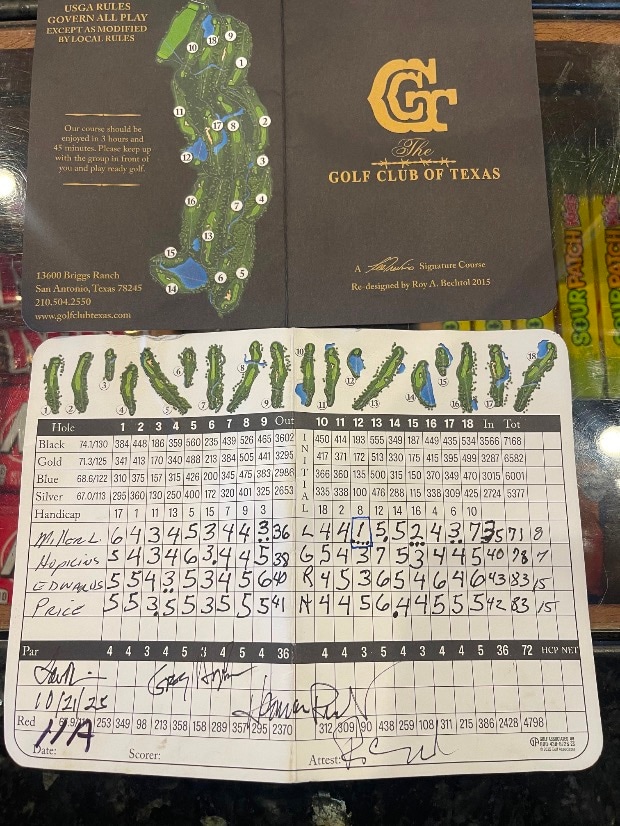 USGA RULES
GOVERN ALL PLAY
EXCEPT AS MODIFIED
BY LOCAL RULES
Our course should be
enjoyed in 3 hours and
45 minutes. Please keep
up with the group in front of
you and play ready golf.
13600 Briggs Ranch
San Antonio, Texas 78245
210.504.2550
www.golfclubtexas.com
The
GOLF CLUB OF TEXAS
A Signature Course
Re-designed by Roy A. Bechtol 2015
SOUR PATCH
SOUR PATCH
Hole 1 2 3 4 5 6 7 8 9 Out INITIAL 10 11 12 13 14 15 16 17 18 In Tot
Black 74.1/130 384 448 186 359 560 235 439 526 465 3602 450 414 193 555 349 187 449 435 534 3566 7168
Gold 71.3/125 341 413 170 340 488 213 384 505 441 3295 417 371 172 513 330 175 415 395 499 3287 6582
Blue 68.6/122 310 375 157 315 426 200 345 475 383 2986 366 360 135 500 315 150 370 349 470 3015 6001
Silver 67.0/113 295 360 130 250 400 172 320 401 325 2653 335 338 100 476 288 115 338 309 425 2724 5377
Handicap 17 1 11 13 5 15 7 9 3 18 2 8 12 14 16 4 6 10
Miller L. 6 4 3 4 5 3 4 4 3 36 L 4 4 1 5 5 2 4 3 7 35 71 8
Hopkins 5 4 3 4 6 3 4 4 5 38 G 5 4 3 7 5 3 4 4 5 40 78 7
EDWARDS 5 5 4 3 5 3 4 5 6 40 R 4 5 3 6 5 4 6 4 6 43 83 15
PRICE 5 5 3 5 5 3 5 5 5 41 H 4 4 5 6 4 4 5 5 5 42 83 15
Par 4 4 3 4 5 3 4 5 4 36 4 4 3 5 4 3 4 4 5 36 72 HCP NET
10/21/25
Red 253 349 98 213 358 158 289 357 295 2370 312 309 90 438 259 108 311 215 386 2428 4798
N/A
Date: Scorer: Attest: